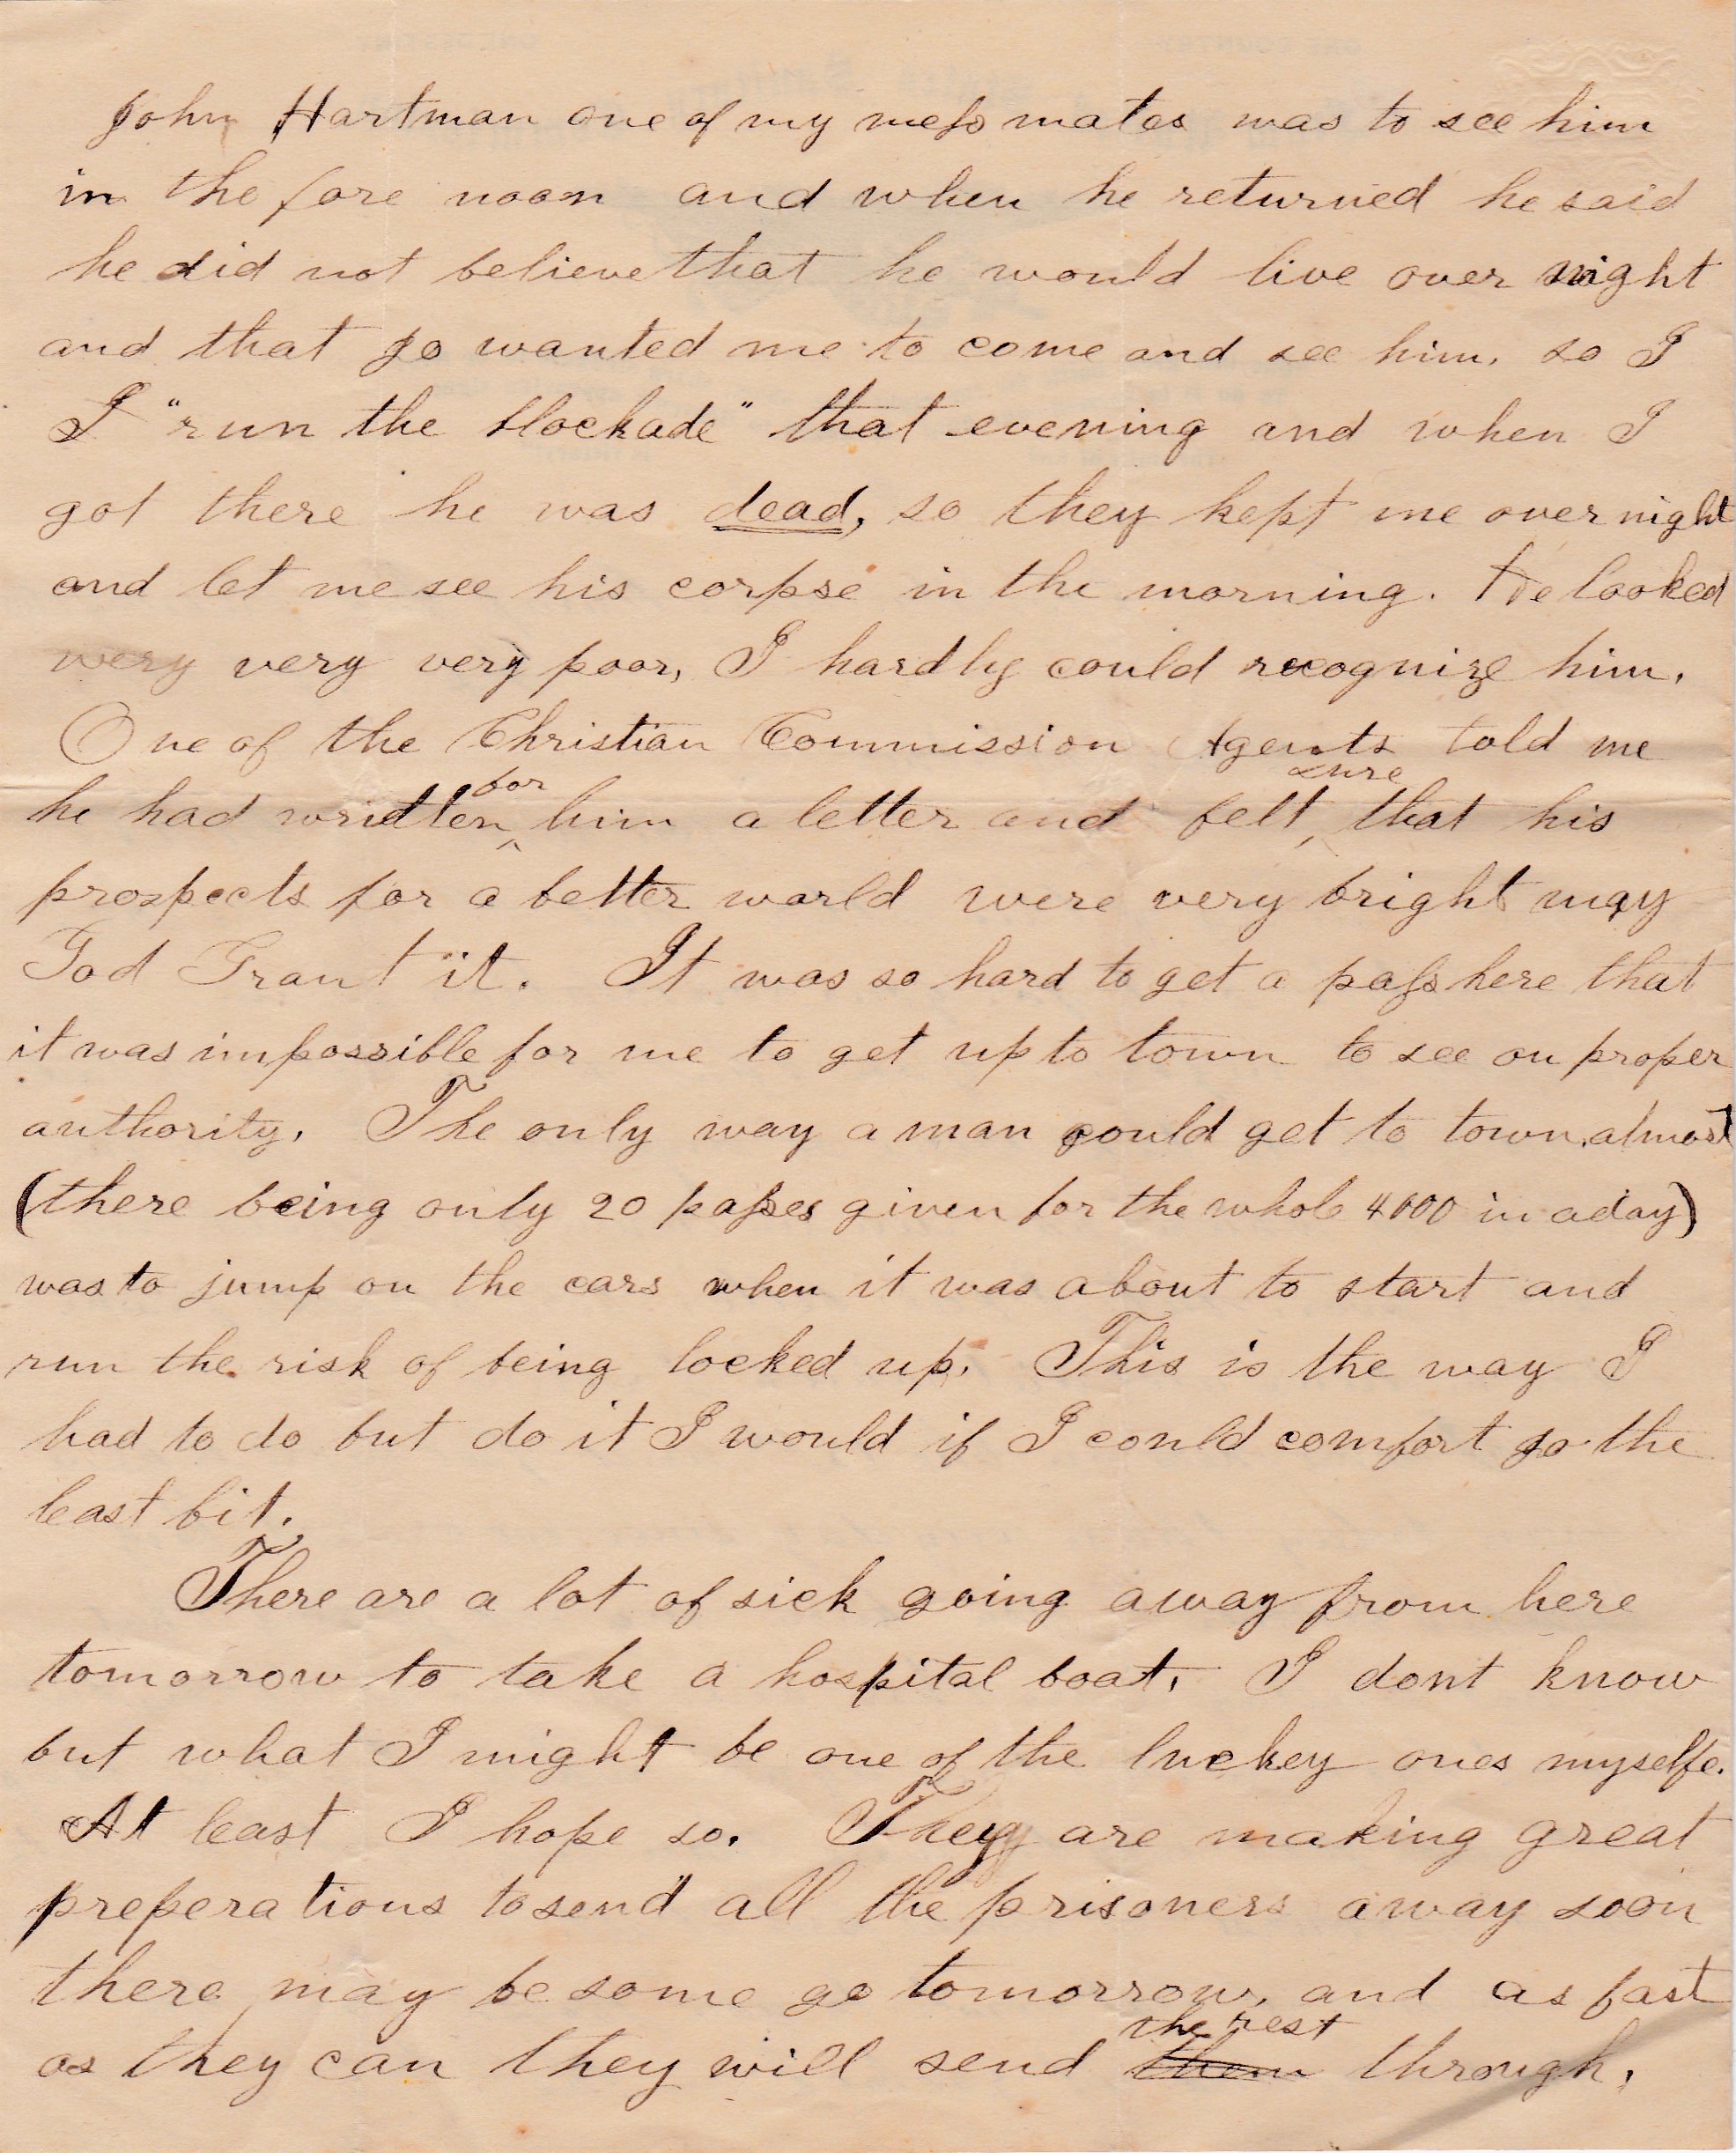 John Hartman one of my mess mates was to see him
in the fore noon and when he returned he said
he did not believe that he would live over night
and that Jo wanted me to come and see him, so I
I "run the blockade" that evening and when I
got there he was dead, so they kept me over night
and let me see his corpse in the morning. He looked
very very very poor, I hardly could recognize him.
One of the Christian Commission Agents told me
he had written for him a letter and felt sure that his
prospects for a better world were very bright may
God Grant it. It was so hard to get a pass here that
it was impossible for me to get up to town to see on proper
authority. The only way a man could get to town, almost
(there being only 20 passes given for the whole 4000 in a day)
was to jump on the cars when it was about to start and
run the risk of being locked up. This is the way I
had to do but do it I would if I could comfort Jo the
least bit.
There are a lot of sick going away from here
tomorrow to take a hospital boat, I dont know
but what I might be one of the luckey ones myselfe.
At least I hope so. They are making great
preperations to send all the prisoners away soon
there may be some go tomorrow, and as fast
as they can they will send them the rest through.